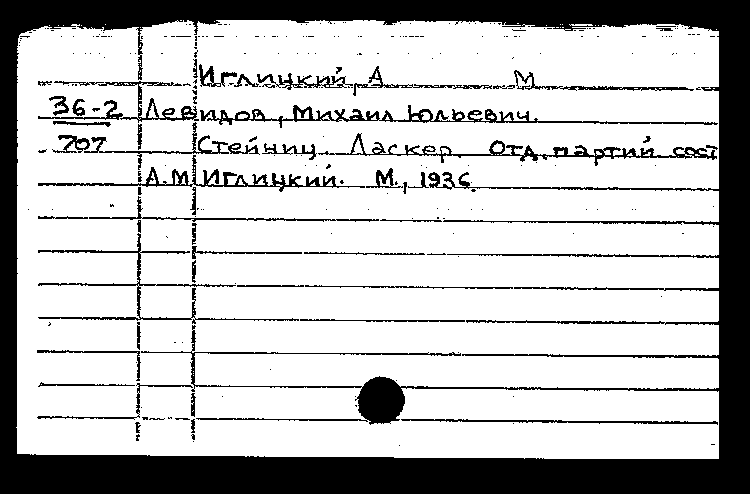 Иглицкий, А М
36-2 Левидов, Михаил Юльевич.
707 Стейниц. Ласкер. Отд. партий сост
А.М. Иглицкий. М., 1936.